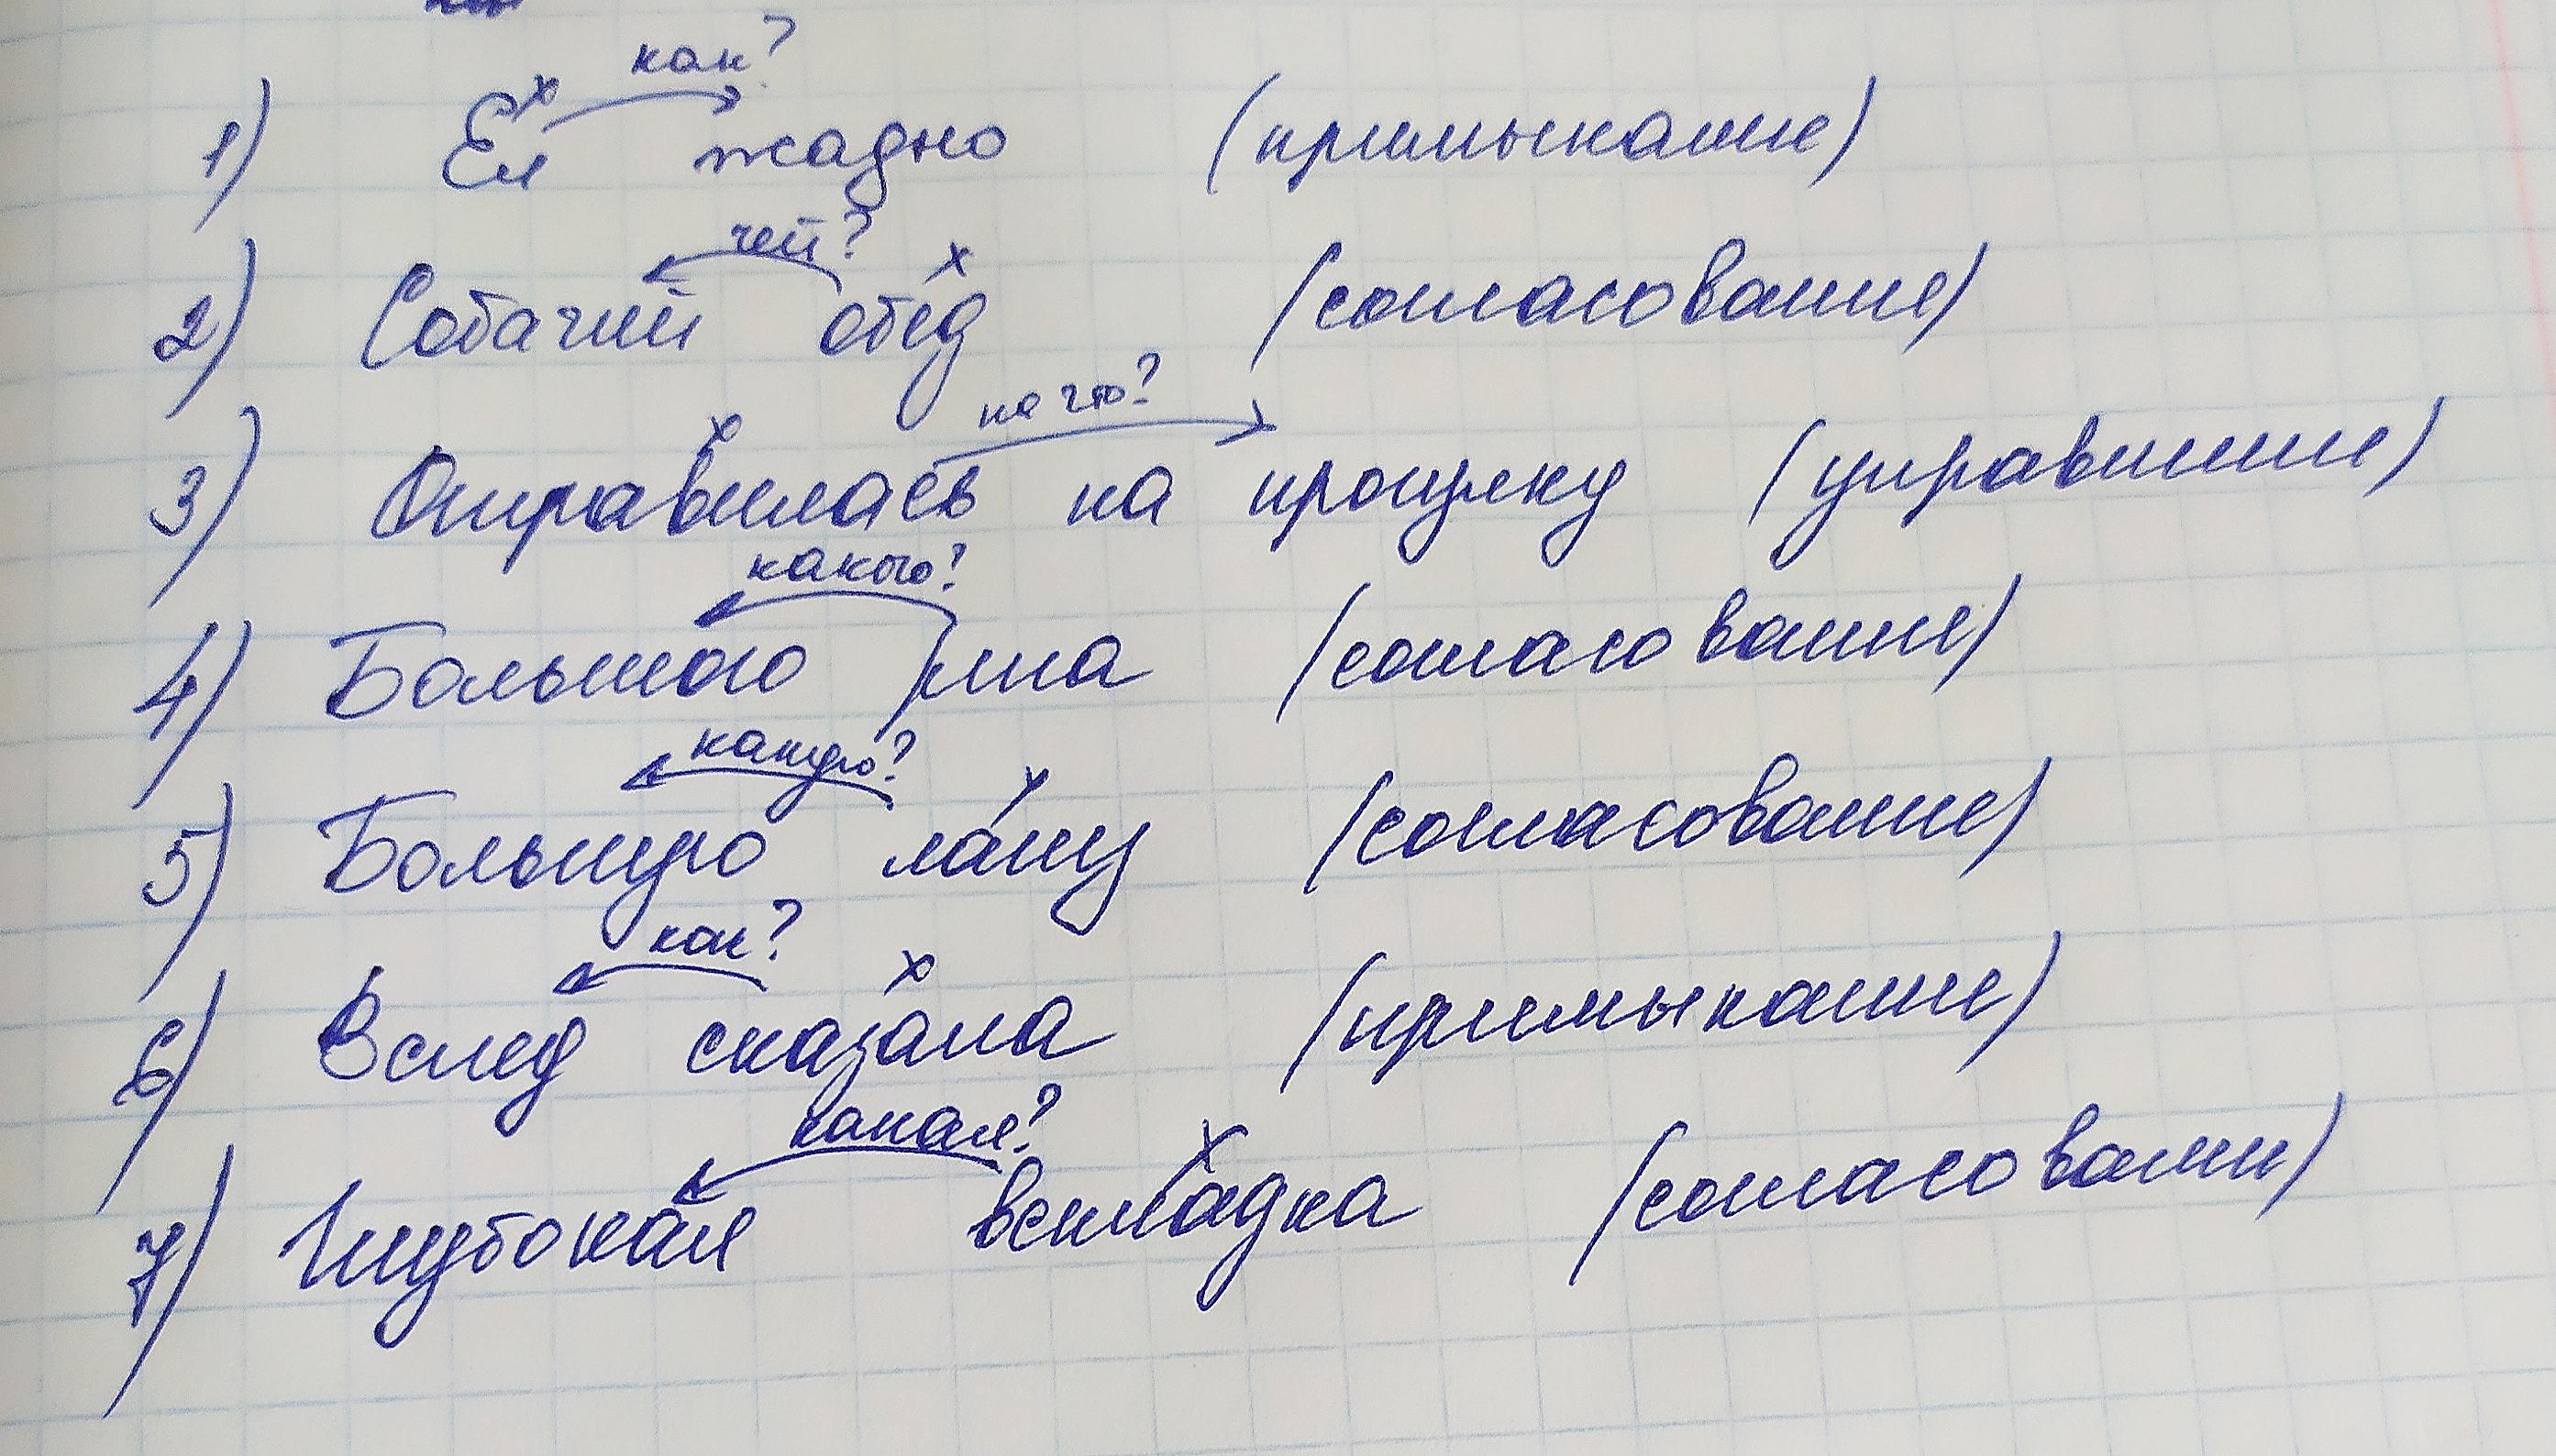 как?
1) Ел жадно (примыкание)
чей?
2) Собачий обед (согласование)
на что?
3) Отправилась на прогулку (управление)
какого?
4) Большого (согласование)
какую?
5) Большую лапу (согласование)
как?
6) Вслед сказала (примыкание)
какая?
7) Глубокая (согласование)